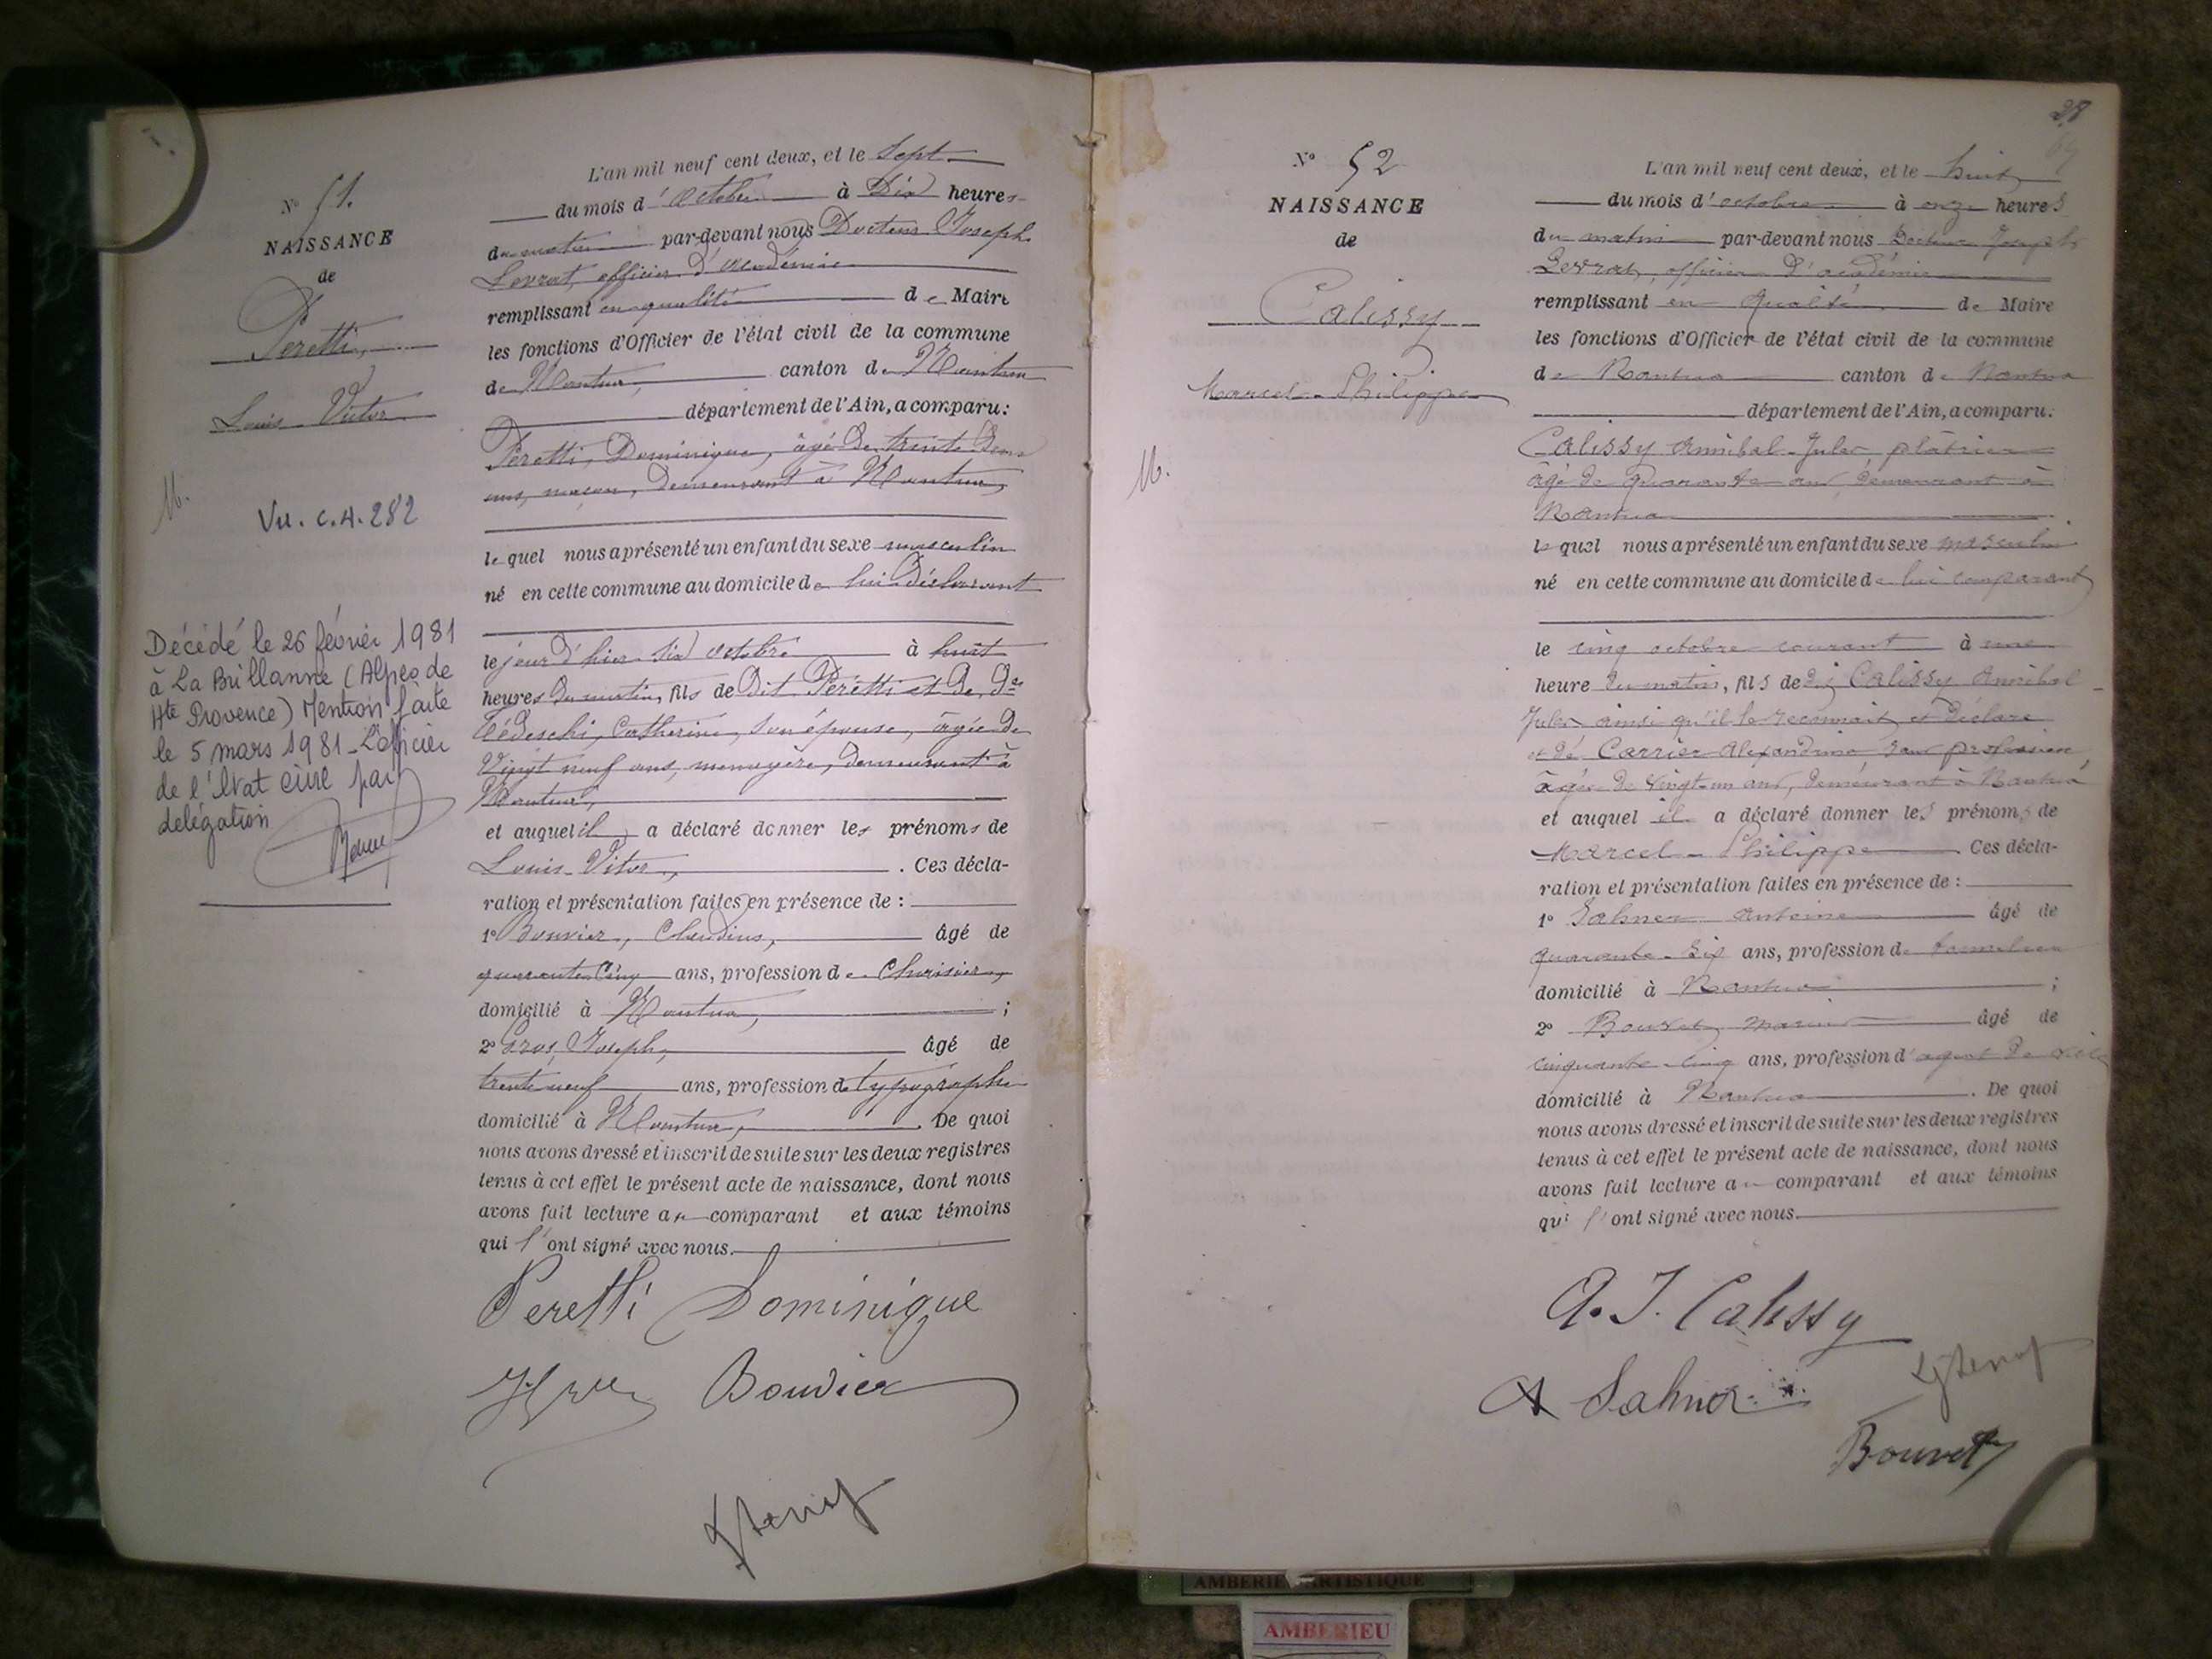 N° 51.
NAISSANCE
de
Peretti,
Louis-Victor
M.
Vu. C.H. 282
Décédé le 26 février 1981
à La Brillanne (Alpes de
Hte Provence) Mention faite
le 5 mars 1981 - L'officier
de l'état civil par
délégation
L'an mil neuf cent deux, et le Sept
du mois d'octobre à Dix heures
du matin par-devant nous Docteur Joseph
Levrat, officier d'académie
remplissant en qualité de Maire
les fonctions d'Officier de l'état civil de la commune
de Nantua, canton de Nantua
département de l'Ain, a comparu:
Peretti, Dominique, âgé de trente deux
ans, maçon, demeurant à Nantua,
lequel nous a présenté un enfant du sexe masculin
né en cette commune au domicile de lui déclarant
le jour d'hier six octobre à huit
heures du matin, fils de Dit Péretti et de De
Tédeschi, Catherine, son épouse, âgée de
Vingt neuf ans, menagère, demeurant à
Nantua,
et auquel il a déclaré donner les prénoms de
Louis-Vitor, . Ces décla-
ration et présentation faites en présence de :
1° Bouvier, Claudius, âgé de
quarante cinq ans, profession de
domicilié à Nantua, ;
2° Gros, Joseph, âgé de
trente neuf ans, profession de typographe
domicilié à Nantua, . De quoi
nous avons dressé et inscrit de suite sur les deux registres
tenus à cet effet le présent acte de naissance, dont nous
avons fait lecture au comparant et aux témoins
qui l'ont signé avec nous.
Peretti Dominique
Bouvier
28
N° 52
NAISSANCE
de
Calissy
Marcel-Philippe
M.
L'an mil neuf cent deux, et le huit
du mois d'octobre à onze heures
du matin par-devant nous Docteur Joseph
Levrat, officier d'académie
remplissant en qualité de Maire
les fonctions d'Officier de l'état civil de la commune
de Nantua canton de Nantua
département de l'Ain, a comparu:
Calissy Annibal-Jules plâtrier
âgé de quarante ans, demeurant à
Nantua
lequel nous a présenté un enfant du sexe masculin
né en cette commune au domicile de lui comparant
le cinq octobre courant à une
heure du matin, fils de dit Calissy Annibal
Jules ainsi qu'il le reconnait et déclare
et de Carrier Alexandrine sans profession
âgée de vingt-un ans, demeurant à Nantua
et auquel il a déclaré donner les prénoms de
Marcel-Philippe . Ces décla-
ration et présentation faites en présence de :
1° Sahner Antoine âgé de
quarante-six ans, profession de
domicilié à Nantua ;
2° Bouvet Marius âgé de
cinquante-cinq ans, profession d'agent de ville
domicilié à Nantua . De quoi
nous avons dressé et inscrit de suite sur les deux registres
tenus à cet effet le présent acte de naissance, dont nous
avons fait lecture au comparant et aux témoins
qui l'ont signé avec nous.
A. J. Calissy
A Sahner
Bouvet
AMBERIEU ARTISTIQUE
AMBERIEU